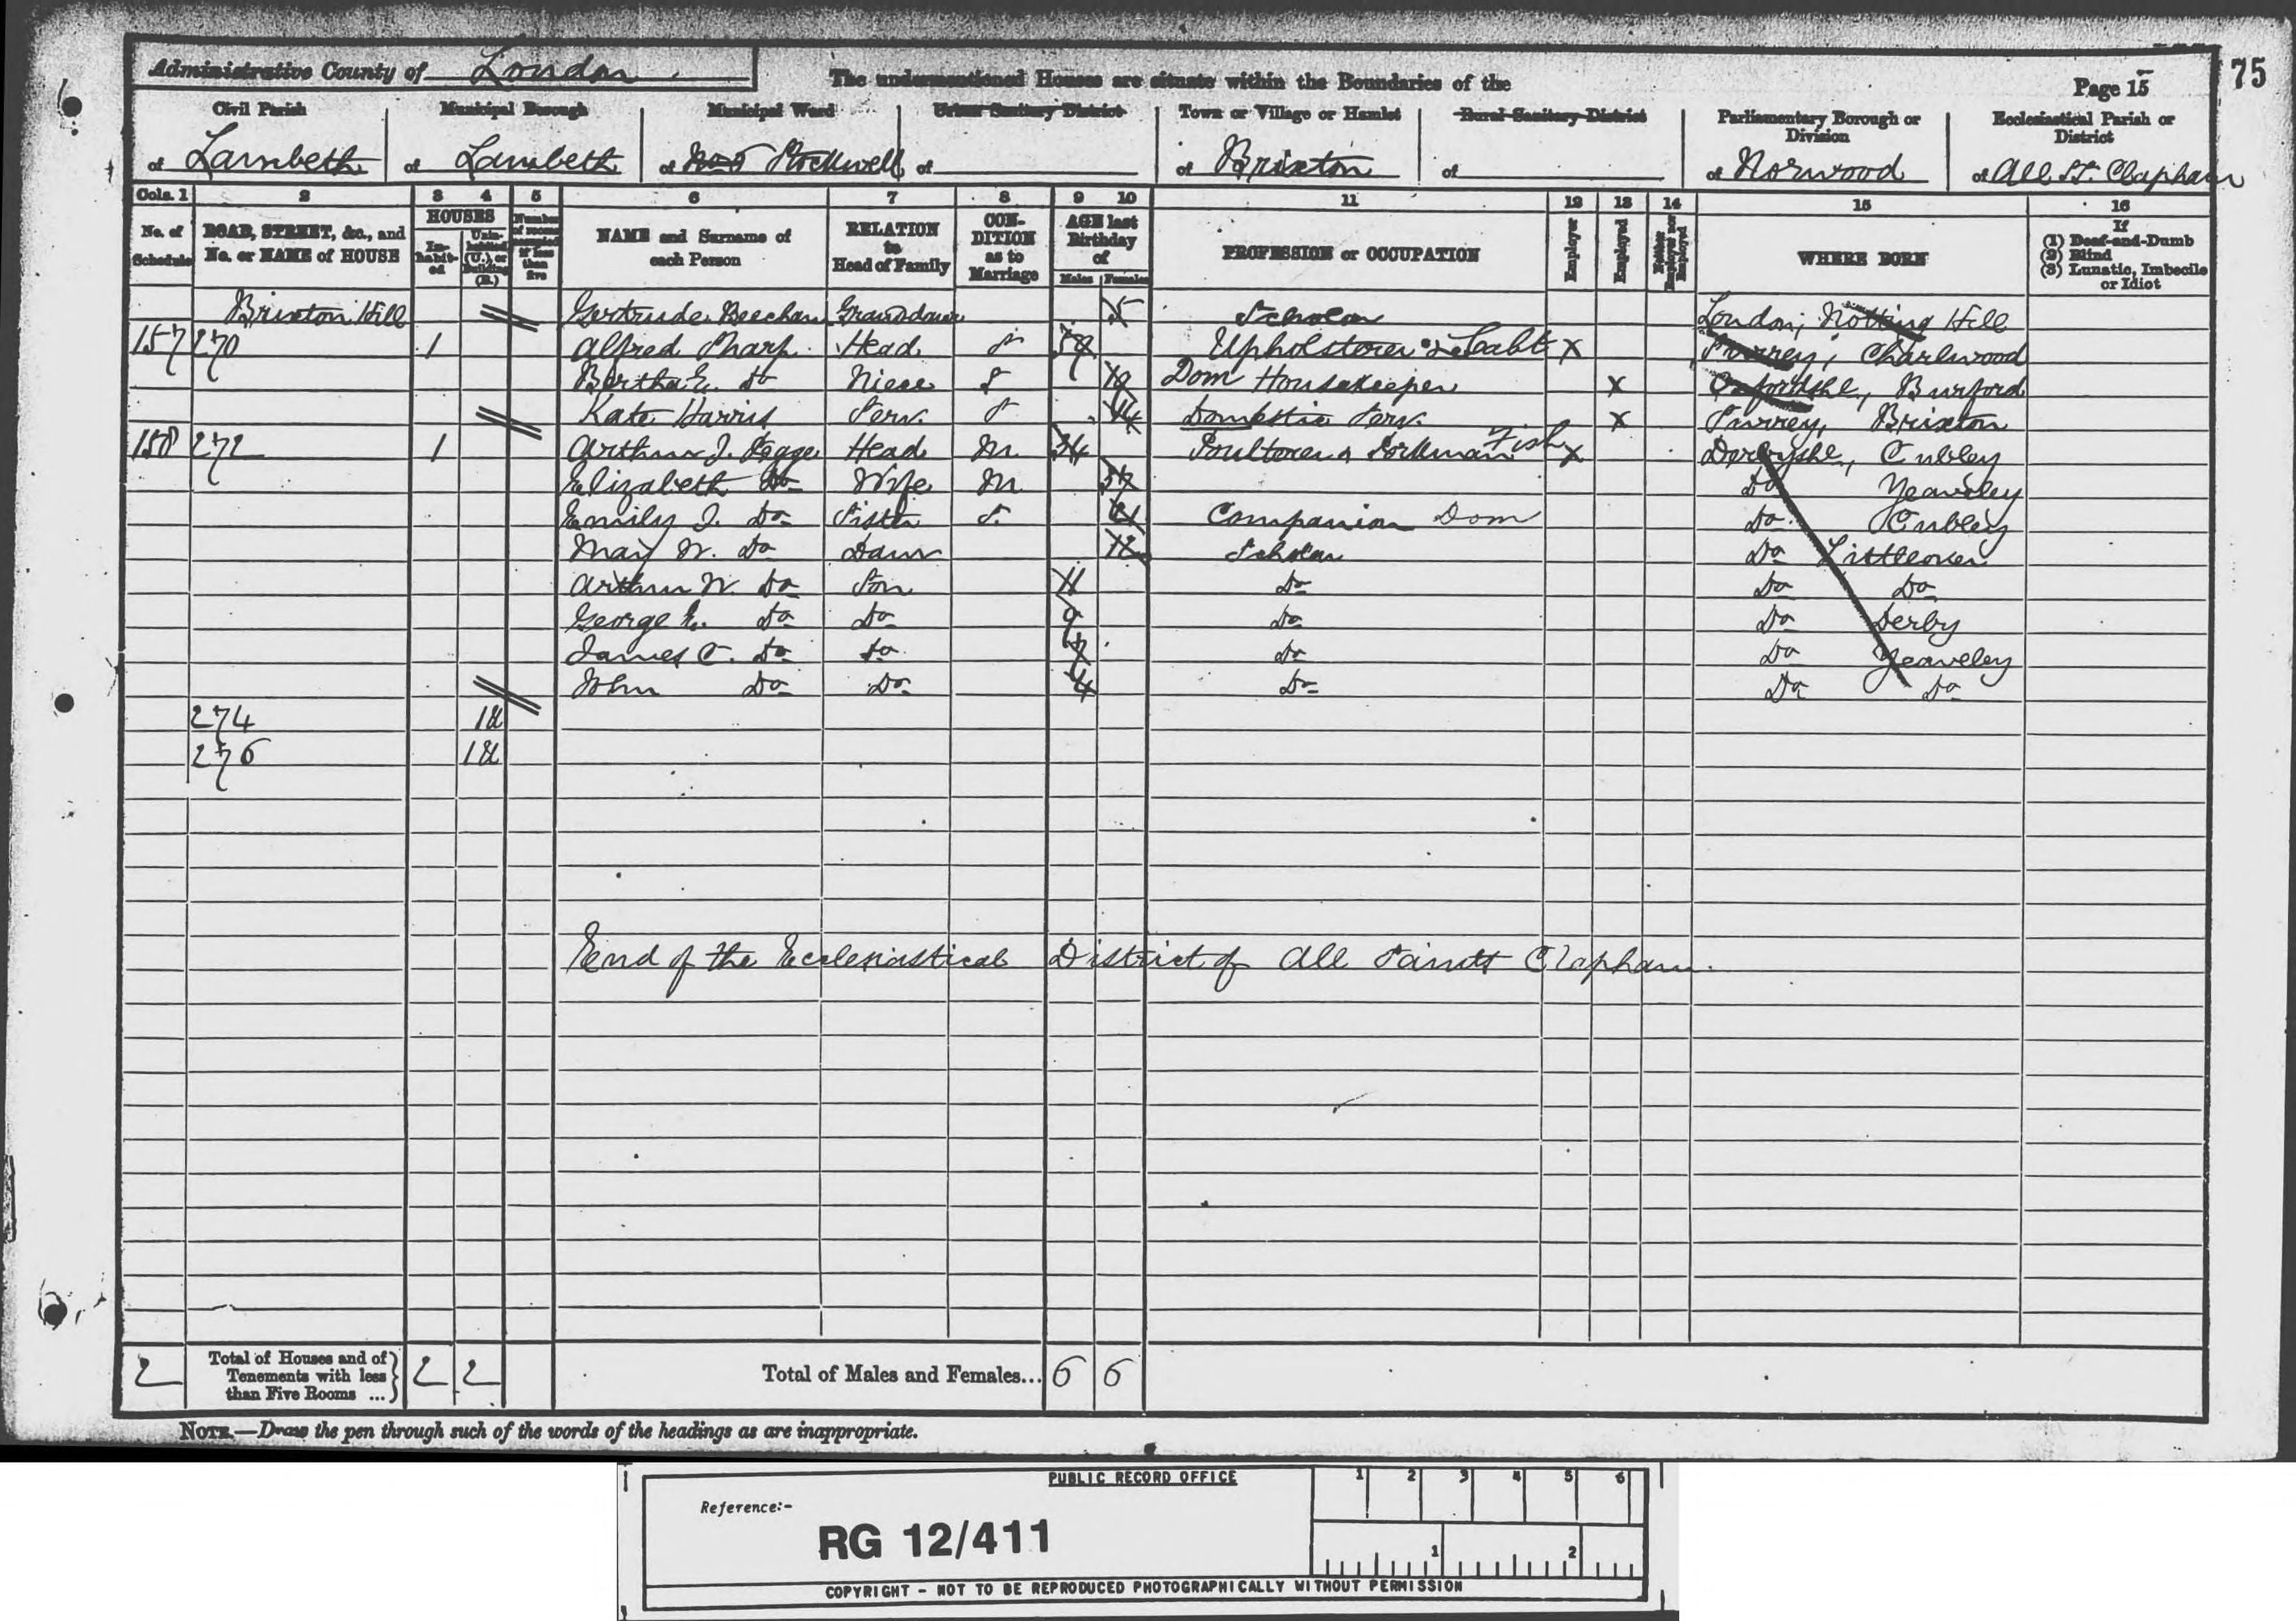 Administrative County of London
The undermentioned Houses are situate within the Boundaries of the
Page 15
75
Civil Parish of Lambeth
Municipal Borough of Lambeth
Municipal Ward of No 5 Stockwell
Urban Sanitary District of
Town or Village or Hamlet of Brixton
Rural Sanitary District of
Parliamentary Borough or Division of Norwood
Ecclesiastical Parish or District of All St. Clapham
Cols. 1 2 3 4 5 6 7 8 9 10 11 12 13 14 15 16
No. of Schedule
ROAD, STREET, &c., and No. or NAME of HOUSE
HOUSES
Inhabited
Uninhabited (U.) or Building (B.)
Number of rooms occupied if less than five
NAME and Surname of each Person
RELATION to Head of Family
CONDITION as to Marriage
AGE last Birthday of
Males Females
PROFESSION or OCCUPATION
Employer
Employed
Neither Employer nor Employed
WHERE BORN
If
(1) Deaf-and-Dumb
(2) Blind
(3) Lunatic, Imbecile or Idiot
Brixton Hill Gertrude Beecham Granddaur 5 Scholar London, Notting Hill
157 270 1 Alfred Sharp Head S 59 Upholsterer & Cabt X Surrey, Charlwood
Bertha E. Do Niece S Dom Housekeeper X Oxfordshe, Burford
Kate Harris Serv. S 14 Domestic Serv. X Surrey, Brixton
158 272 1 Arthur J. Head M 34 Poulterer & Porkman Fish X Derbyshe, Cubley
Elizabeth Do Wife M Do Yeaveley
Emily J. Do Sister S. Companion Dom Do Cubley
May W. Do Daur 12 Scholar Do Littleover
Arthur W. Do Son 11 Do Do Do
George E. Do Do 9 Do Do Derby
James C. Do Do 7 Do Do Yeaveley
John Do Do 4 Do Do Do
274 1U
276 1U
End of the Ecclesiastical District of All Saints Clapham.
2 Total of Houses and of Tenements with less than Five Rooms ... 2 2 Total of Males and Females... 6 6
NOTE.—Draw the pen through such of the words of the headings as are inappropriate.
PUBLIC RECORD OFFICE
1 2 3 4 5 6
Reference:-
RG 12/411
1 2
COPYRIGHT - NOT TO BE REPRODUCED PHOTOGRAPHICALLY WITHOUT PERMISSION